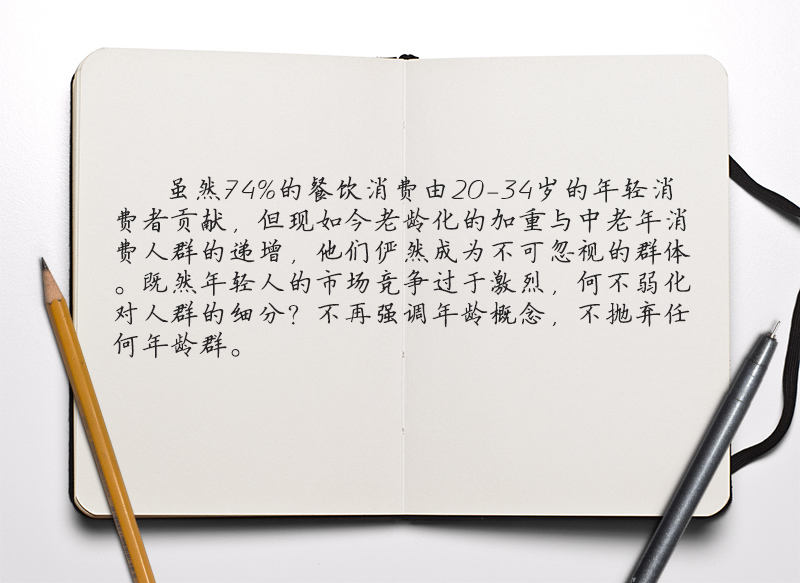 虽然74%的餐饮消费由20-34岁的年轻消
费者贡献，但现如今老龄化的加重与中老年消
费人群的递增，他们俨然成为不可忽视的群体
。既然年轻人的市场竞争过于激烈，何不弱化
对人群的细分？不再强调年龄概念，不抛弃任
何年龄群。